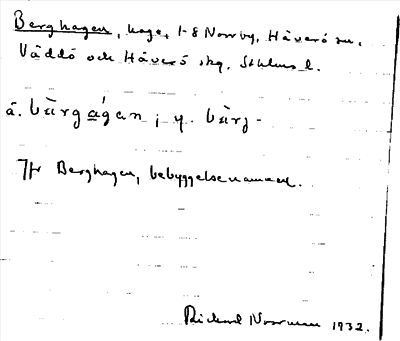 Berghagen, hage, 1-8 Norrby, Häverö sn,
Väddö och Häverö skg, Sthlms l.
ä. bärgágan; y. bärj-
Jfr Berghagen, bebyggelsenamn.
Rickard Norrman 1932.